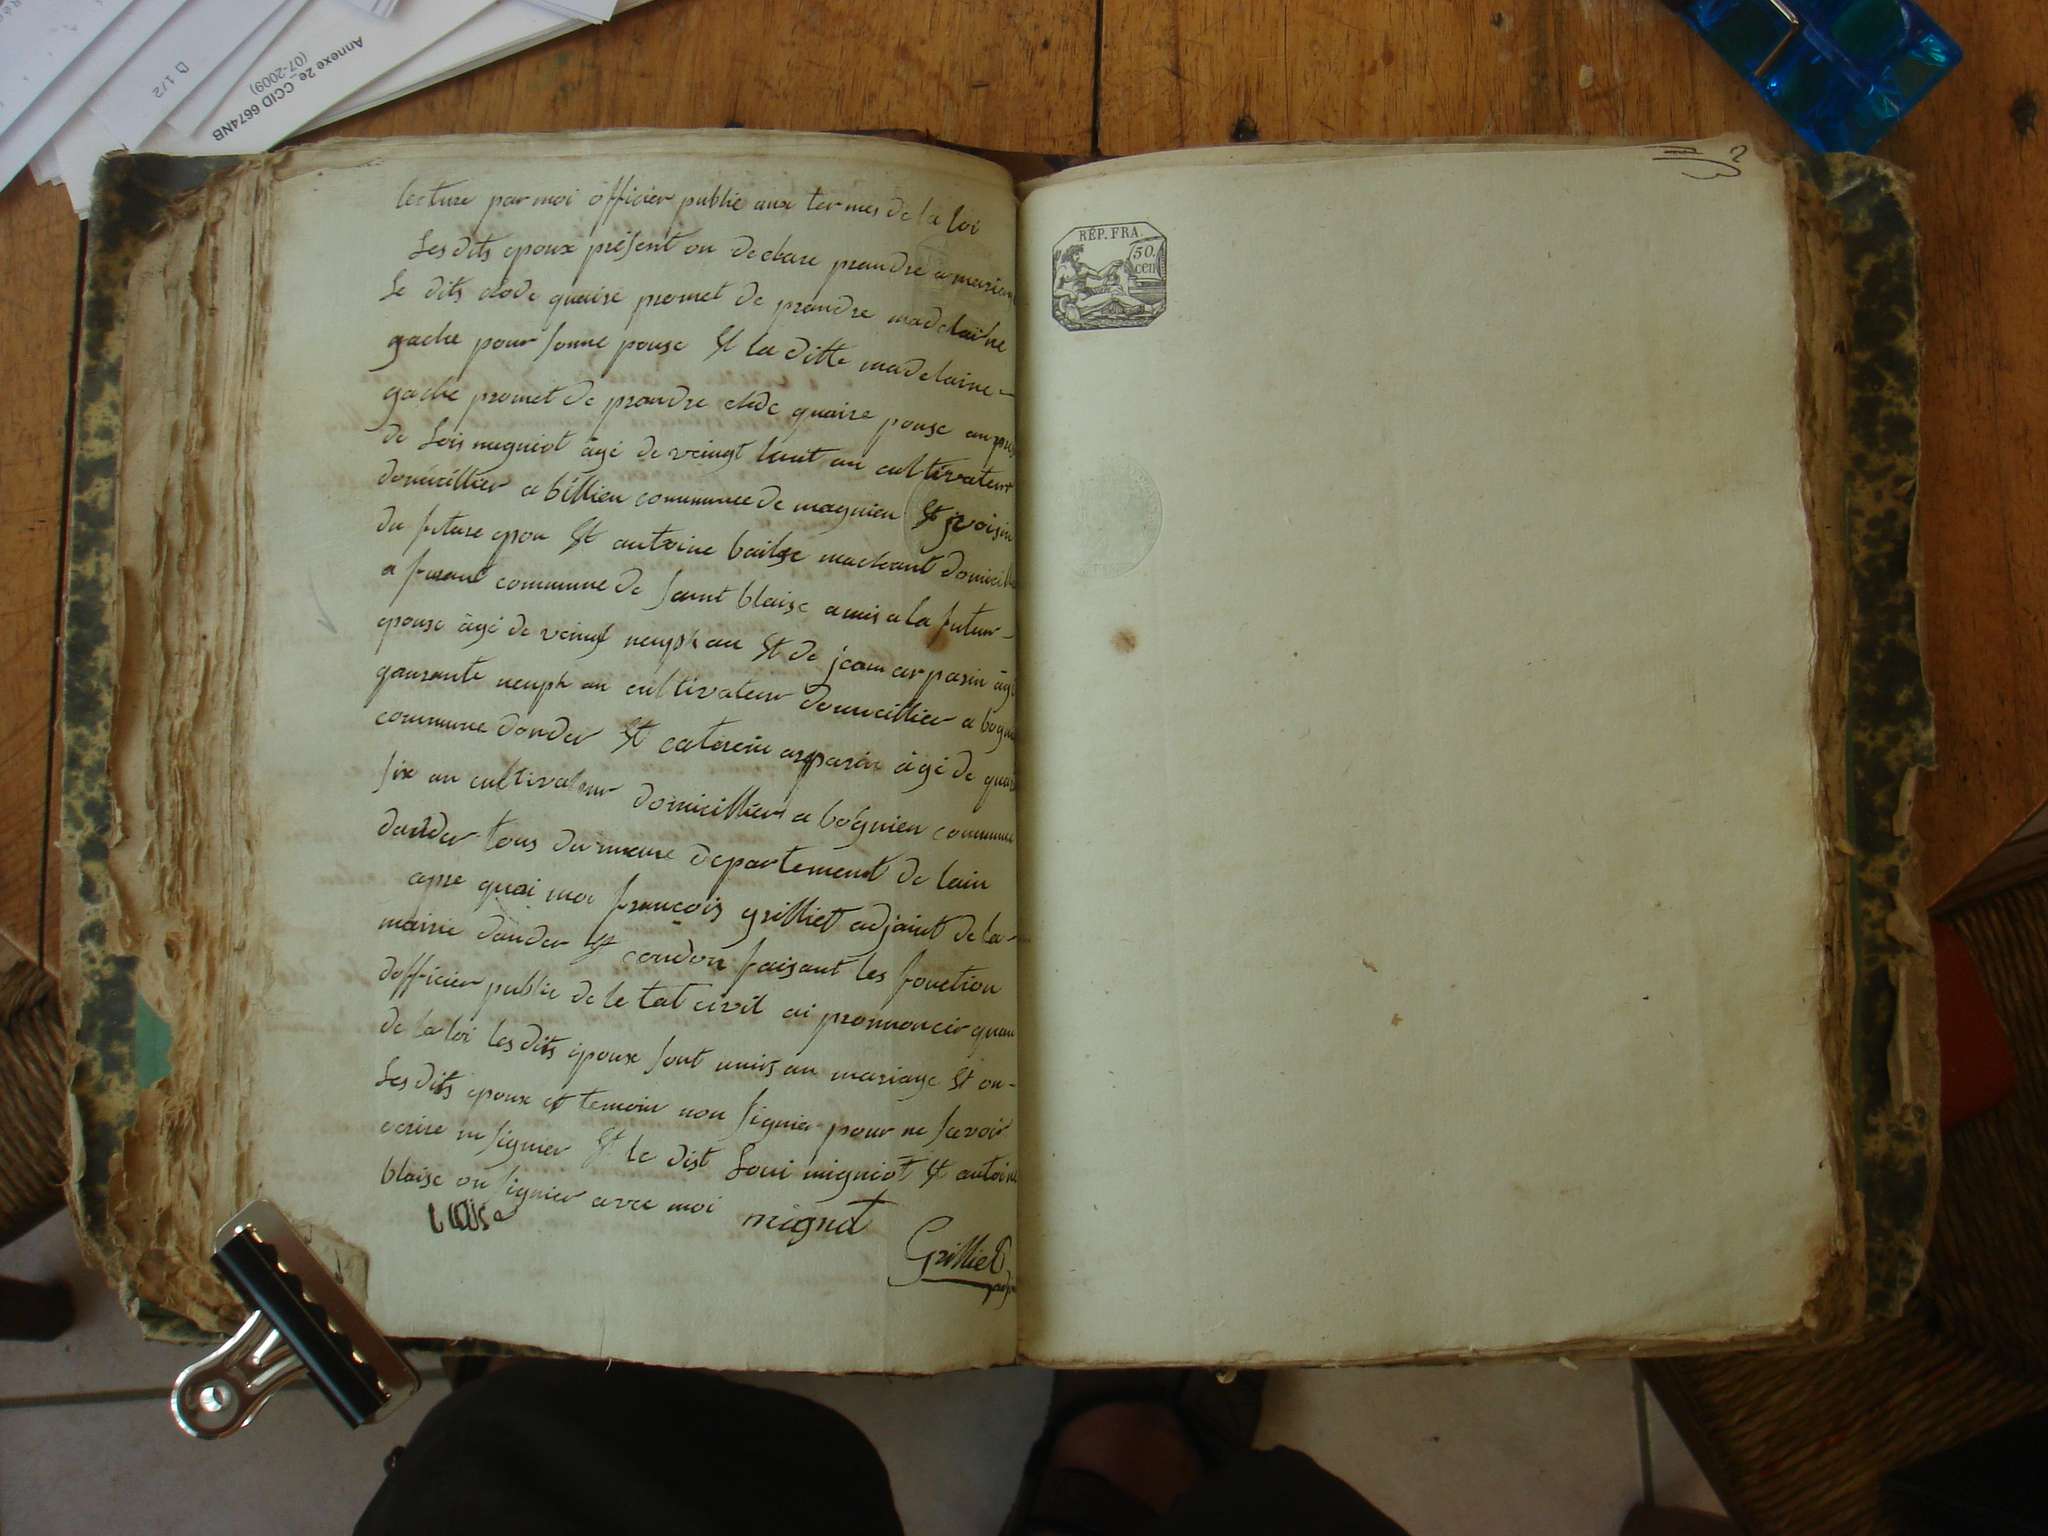 Annexe 2e_CCID 6674NB
(07-2009)
1/2
lecture par moi officier public aux termes de la loi
Les dits epoux présent on declare prandre a mariag
Le dits clode quaire promet de prandre madelaine
gache pour sonne pouse Et la ditte madelaine
gache promet de prandre clode quaire pouse an pres
de Lois migniot âgé de veingt huit an cultivateur
domicillier a billieu commune de magnieu Et voisin
du future epou Et antoine bailse machant domicill
a commune de saint blaise amis a la futur
epouse âgé de veint neuph an Et de jean arpasin âgé
garante neuph an cultivateur domicillier a bognie
commune dander Et caterein arpasin âgé de quar
six an cultivateur domicillier a bognien commune
dander tous du meme departement de lain
apre quoi moi françois grilliet adjoint de la
mairie dander Et condon faisant les fonction
dofficier public de le tat civil ai pronnoncir quau
de la loi les dits époux sont unis an mariage Et on
Les dits epoux et temoin non signier pour ne savoir
ecrire ni signier Et le dist Loui migniot Et antoine
blaise on signier avec moi
blaise mignot
Grilliet
RÉP. FRA.
50.
cen